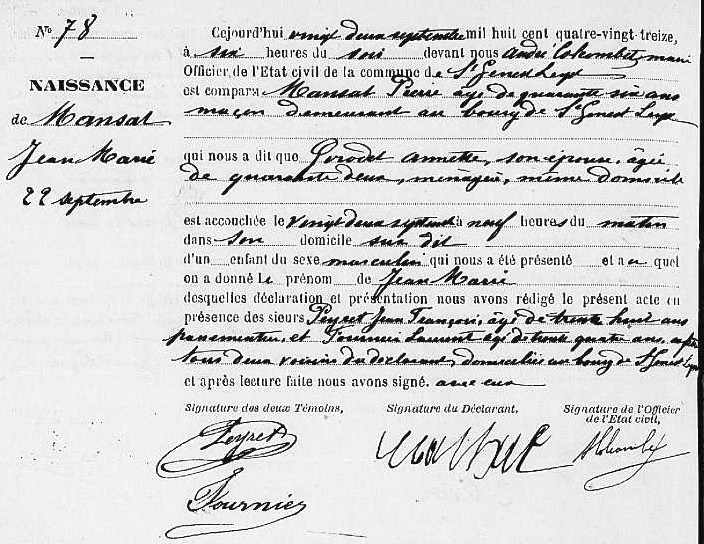 N° 78
NAISSANCE
de Mansat
Jean Marie
22 septembre
Cejourd'hui vingt deux septembre mil huit cent quatre-vingt-treize,
à six heures du soir devant nous André Colcombet, maire
Officier de l'Etat civil de la commune de St Genest Lerpt
est comparu Mansat Pierre âgé de quarante six ans
maçon demeurant au bourg de St Genest Lerpt
qui nous a dit que Annette, son épouse, âgée
de quarante deux, ménagère, même domicile
est accouchée le vingt deux septembre à neuf heures du matin
dans son domicile sus dit
d'un enfant du sexe masculin qui nous a été présenté et auquel
on a donné le prénom de Jean Marie
desquelles déclaration et présentation nous avons rédigé le présent acte en
présence des sieurs Peyret Jean François, âgé de trente huit ans
passementier, et Fournier Laurent âgé de trente quatre ans,
tous deux voisins du déclarant, domiciliés au bourg de St Genest Lerpt
et après lecture faite nous avons signé. avec eux
Signature des deux Témoins,
Signature du Déclarant,
Signature de l'Officier
de l'Etat civil,
Peyret
Fournier